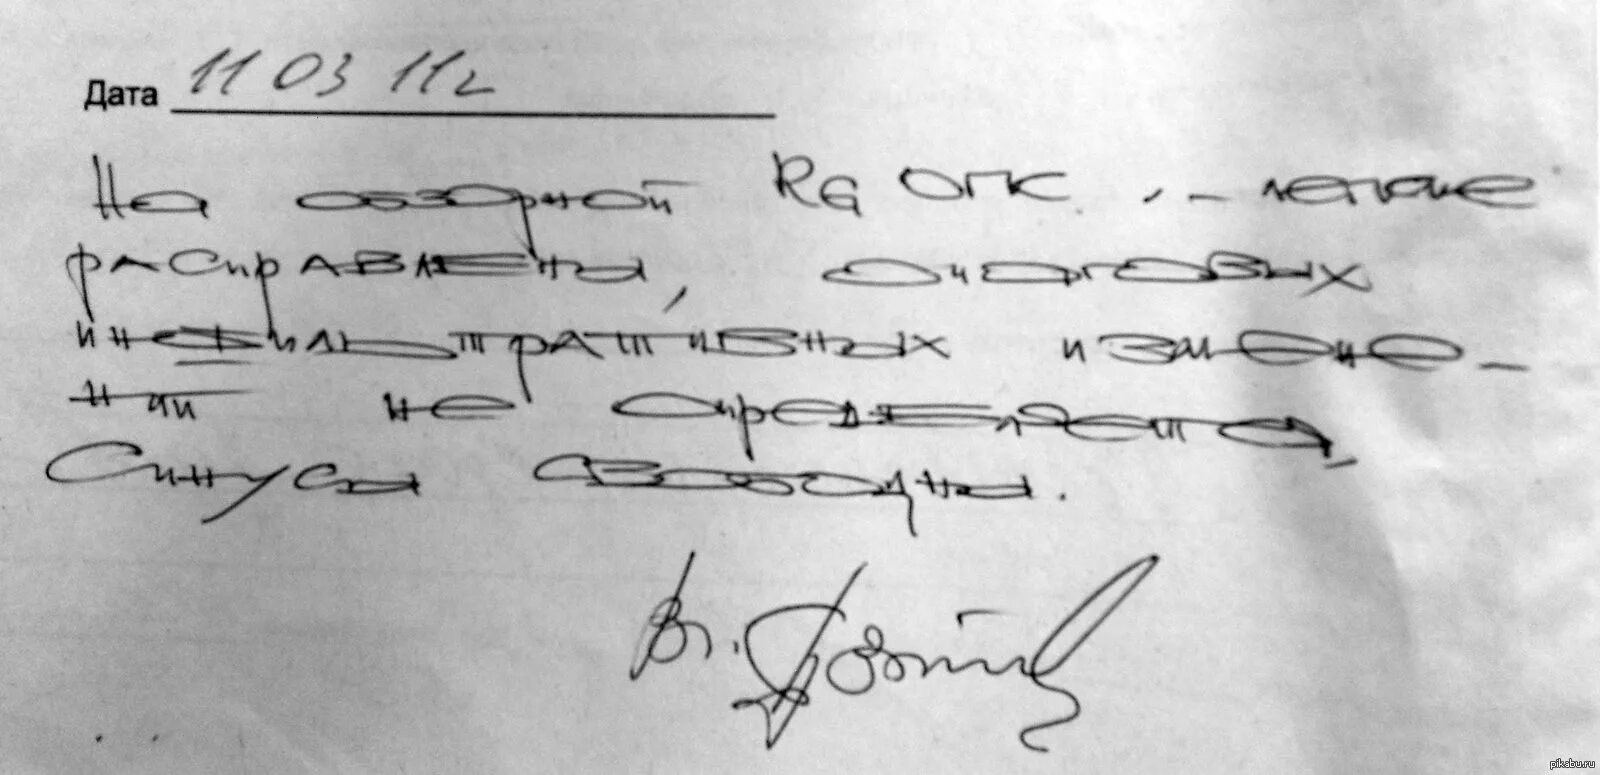 Дата 11 03 11г
На обзорной RG ОГК, - легкие
расправлены, очаговых
инфильтративных измене-
ний не определяется,
Синусы свободны.
Вр.
pikabu.ru